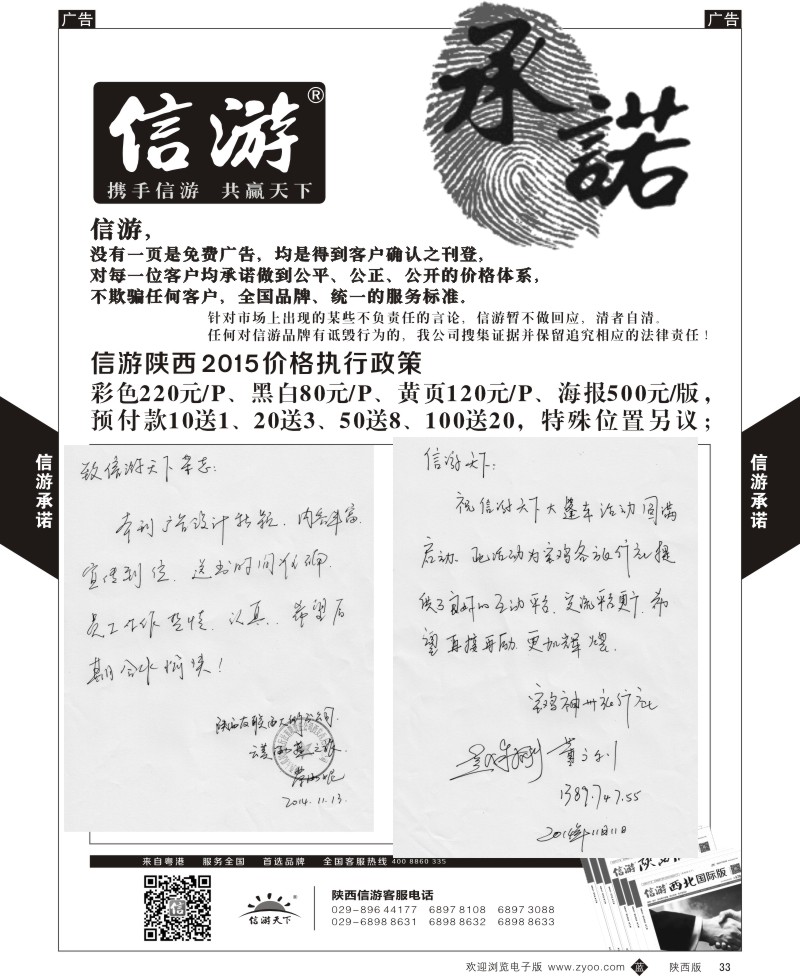 广告
广告
承諾
信游®
携手信游 共赢天下
信游，
没有一页是免费广告，均是得到客户确认之刊登，
对每一位客户均承诺做到公平、公正、公开的价格体系，
不欺骗任何客户，全国品牌、统一的服务标准。
针对市场上出现的某些不负责任的言论，信游暂不做回应，清者自清。
任何对信游品牌有诋毁行为的，我公司搜集证据并保留追究相应的法律责任！
信游陕西2015价格执行政策
彩色220元/P、黑白80元/P、黄页120元/P、海报500元/版，
预付款10送1、20送3、50送8、100送20，特殊位置另议；
信游承诺
信游承诺
致信游天下杂志：
本刊广告设计新颖、内容丰富
宣传到位、送书时间准确
员工工作热情、认真、希望后
期合作愉快！
2014.11.13
信游天下：
祝信游天下大蓬车活动圆满
启动、此活动为宝鸡各旅行社提
供了良好的互动平台、交流平台更广、希
望再接再励、更加辉煌.
宝鸡神州旅行社
2014年11月11日
来自粤港 服务全国 首选品牌 全国客服热线 400 8860 335
信游
信游天下
陕西信游客服电话
029-896 44177 6897 8108 6897 3088
029-6898 8631 6898 8632 6898 8633
信游 陕
信游 西北国际版
欢迎浏览电子版 www.zyoo.com 蓝 陕西版 33